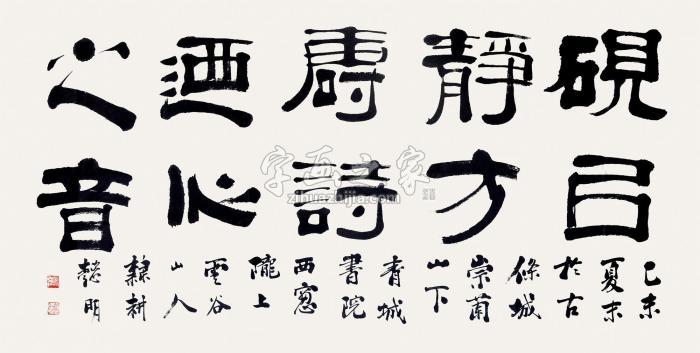 硯㠯
靜方
壽詩
迺心
之音
乙未
夏末
於古
條城
崇
山下
青城
書院
西窓
隴上
雲谷
山人
耕
明
字画之家
zihuazhijia.com